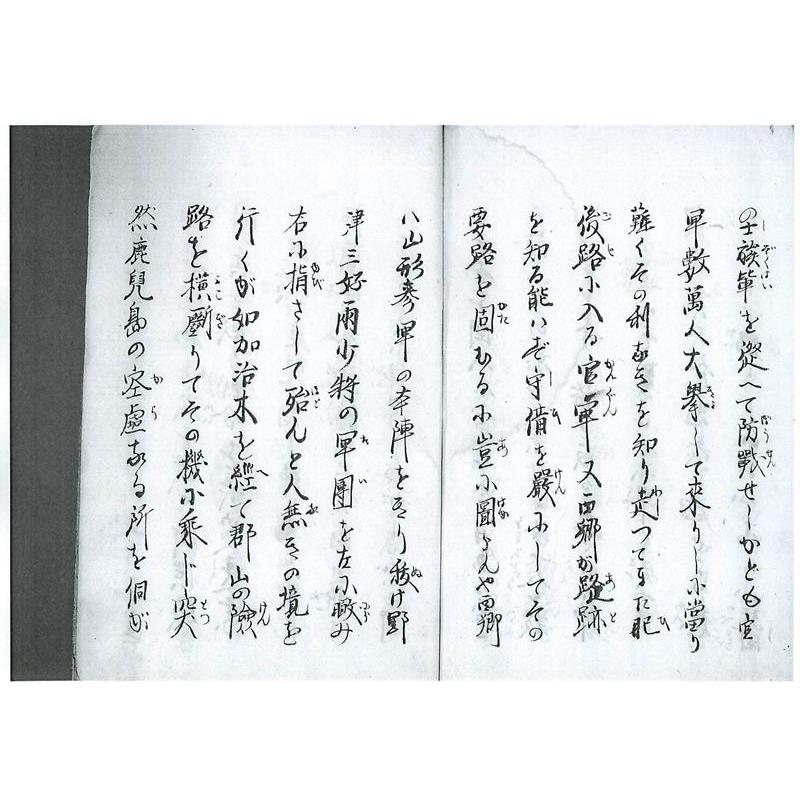 の士族輩を從へて防戰せしかども官
軍數萬人大擧して來りしに當り
難くその利なきを知り走つてまた肥
後路に入る官軍又西郷が蹤跡
を知る能はず守備を嚴にしてその
要路を固むるに豈に圖らんや西郷
ハ山形參軍の本陣をきり拔け野
津三好兩少將の軍團を左に睨み
右に指さして殆んと人無きの境を
行くが如加治木を經て郡山の險
路を横斷りてその機に乘ト突
然鹿兒島の空虚なる所を伺が